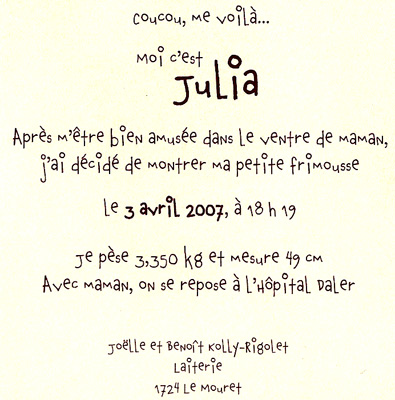 coucou, me voilà...
Moi c'est
Julia
Après m'être bien amusée dans le ventre de maman,
j'ai décidé de montrer ma petite frimousse
Le 3 avril 2007, à 18 h 19
Je pèse 3,350 kg et mesure 49 cm
Avec maman, on se repose à l'Hôpital Daler
Joëlle et Benoît Kolly-Rigolet
Laiterie
1724 Le Mouret